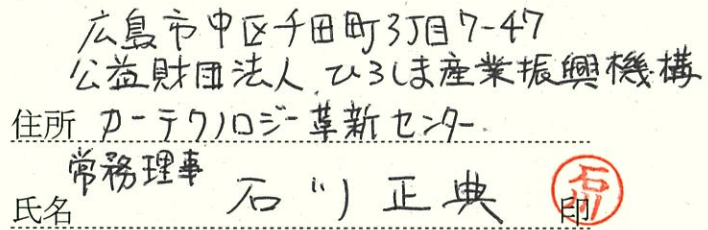 広島市中区千田町3丁目7-47
公益財団法人 ひろしま産業振興機構
住所 カーテクノロジー革新センター
常務理事
氏名 石川正典 印
石川